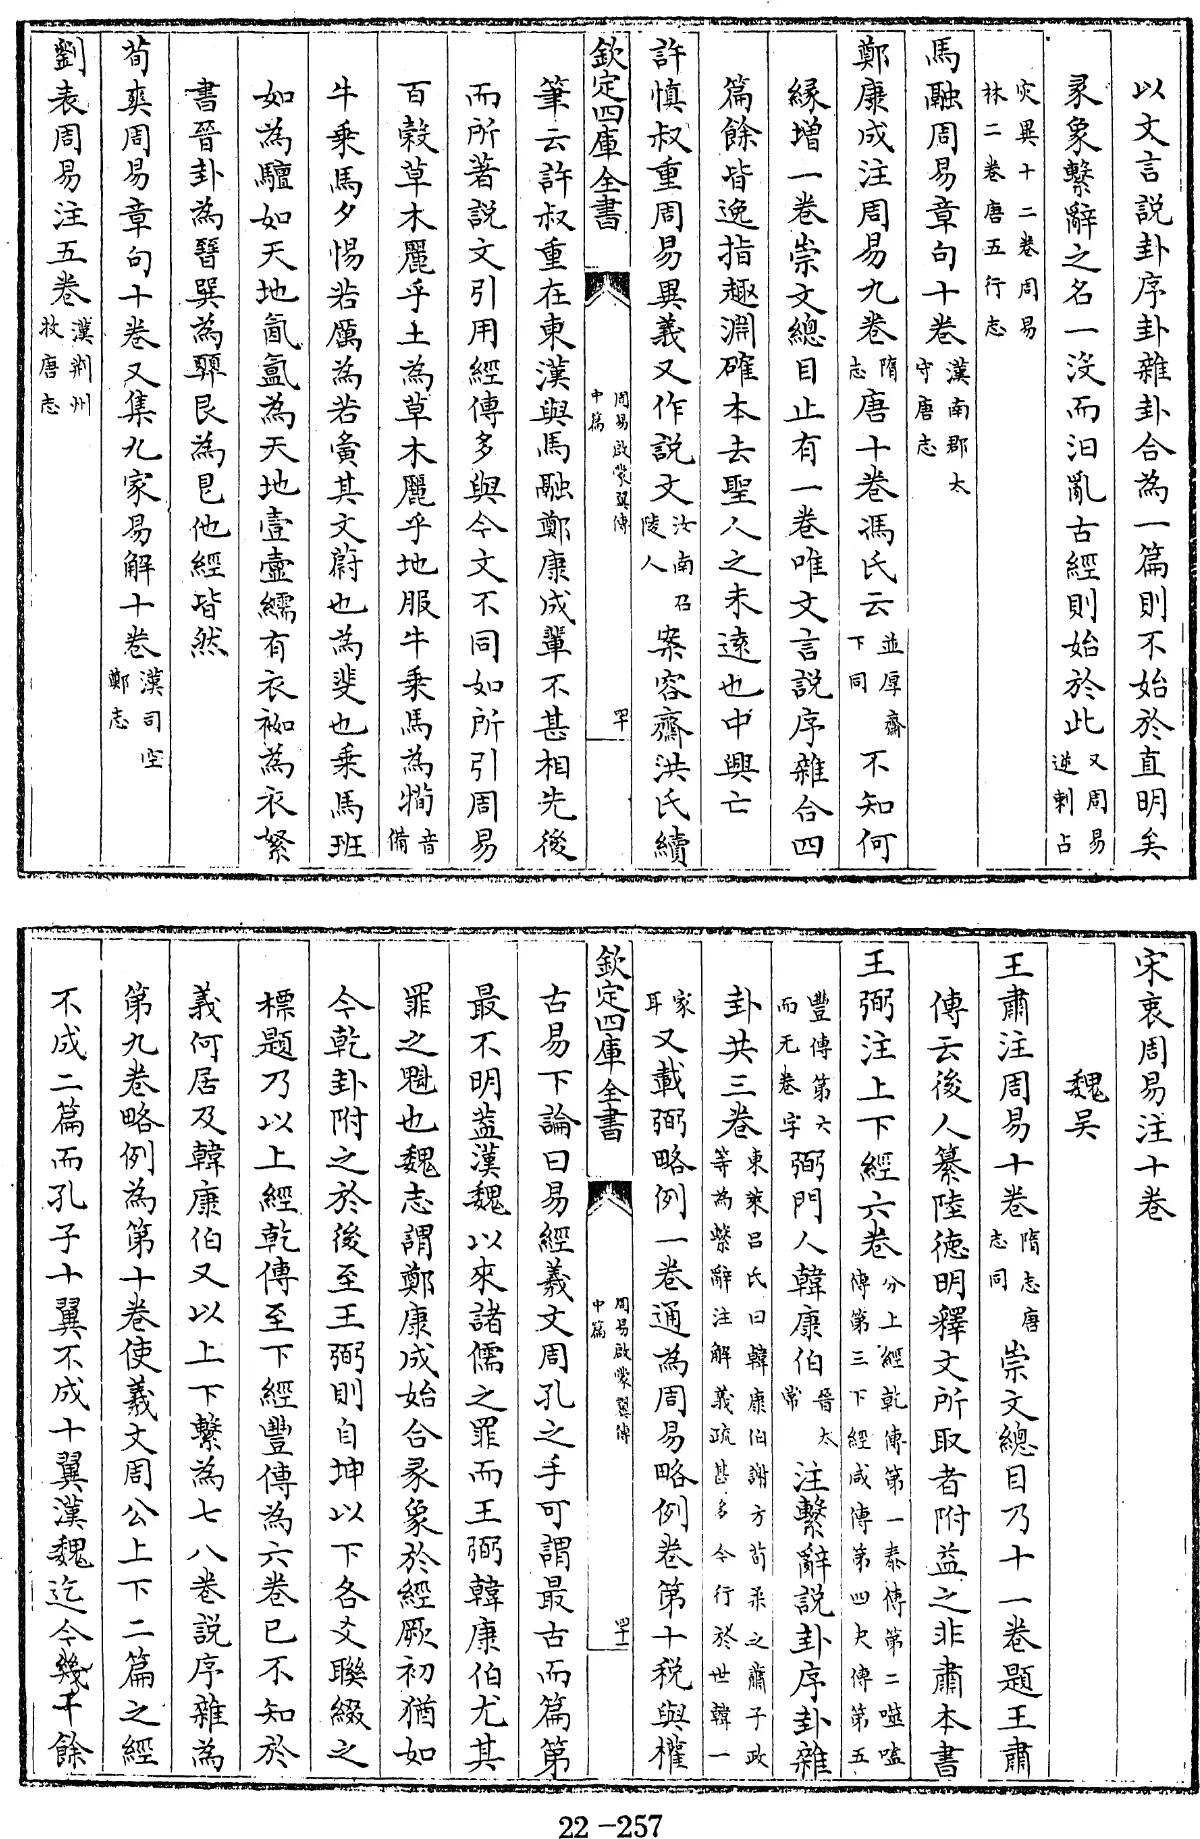 以文言説卦序卦雜卦合為一篇則不始於直明矣
彖象繫辭之名一沒而汨亂古經則始於此又周易逆刺占
灾異十二卷周易林二卷唐五行志
馬融周易章句十卷漢南郡太守唐志
鄭康成注周易九卷隋志唐十卷馮氏云並厚齋下同不知何
緣增一卷崇文總目止有一卷唯文言説序雜合四
篇餘皆逸指趣淵確本去聖人之未遠也中興亡
許慎叔重周易異義又作説文汝南召陵人案容齋洪氏續
欽定四庫全書
周易啟蒙翼傳中篇
四十
筆云許叔重在東漢與馬融鄭康成輩不甚相先後
而所著説文引用經傳多與今文不同如所引周易
百穀草木麗乎土為草木麗乎地服牛乘馬為犕音備
牛乘馬夕惕若厲為若夤其文蔚也為斐也乘馬班
如為驙如天地氤氳為天地壹壼繻有衣袽為衣絮
書晉卦為㬜巽為顨艮為皀他經皆然
荀爽周易章句十卷又集九家易解十卷漢司空鄭志
劉表周易注五卷漢荆州牧唐志
宋衷周易注十卷
魏吴
王肅注周易十卷隋志唐志同崇文總目乃十一卷題王肅
傳云後人纂陸德明釋文所取者附益之非肅本書
王弼注上下經六卷分上經乾傳第一泰傳第二噬嗑傳第三下經咸傳第四夬傳第五
豐傳第六而无卷字弼門人韓康伯晉太常注繫辭説卦序卦雜
卦共三卷東萊吕氏曰韓康伯謝方荀柔之齋子政等為繫辭注解義疏甚多今行於世韓一
家耳又載弼略例一卷通為周易略例卷第十税與權
欽定四庫全書
周易啟蒙翼傳中篇
四十一
古易下論曰易經羲文周孔之手可謂最古而篇第
最不明蓋漢魏以來諸儒之罪而王弼韓康伯尤其
罪之魁也魏志謂鄭康成始合彖象於經厥初猶如
今乾卦附之於後至王弼則自坤以下各爻聯綴之
標題乃以上經乾傳至下經豐傳為六卷已不知於
義何居及韓康伯又以上下繫為七八卷説序雜為
第九卷略例為第十卷使羲文周公上下二篇之經
不成二篇而孔子十翼不成十翼漢魏迄今幾千餘
22-257